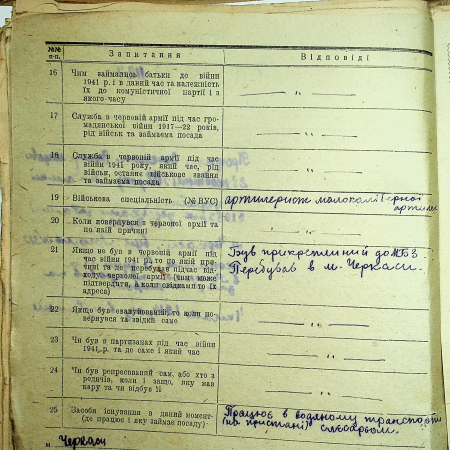 №№ п-п.
Запитання
Відповіді
16
Чим займались батьки до війни
1941 р. і в даний час та належність
їх до комуністичної партії і з
якого часу
— „ —
17
Служба в червоній армії під час гро-
мадянської війни 1917—22 років,
рід військ та займаєма посада
— „ —
18
Служба в червоній армії під час
війни 1941 року, який час, рід
військ, останнє військове звання
та займаєма посада
— „ —
19
Військова спеціальність (№ ВУС)
артилерист малокаліберної
артилер
20
Коли повернувся з червоної армії та
по якій причині
— „ —
21
Якщо не був в червоній армії під
час війни 1941 р. то по якій при-
чині та де перебував підчас під-
ходу червоної армії (хто може
підтвердити, а коли свідками то їх
адреса)
Був прикреплений до
Перебував в м. Черкаси.
22
Якщо був евакуйований, то коли по-
вернувся та звідки саме
— „ —
23
Чи був в партизанах під час війни
1941 р. та де саме і який час
— „ —
24
Чи був репресований сам, або хто з
родичів, коли і защо, яку мав
кару та чи відбув її
— „ —
25
Засоби існування в даний момент
(де працює і яку займає посаду)
Працює в водяному транспорті
(на пристані) слюсарьом.
м Черкаси